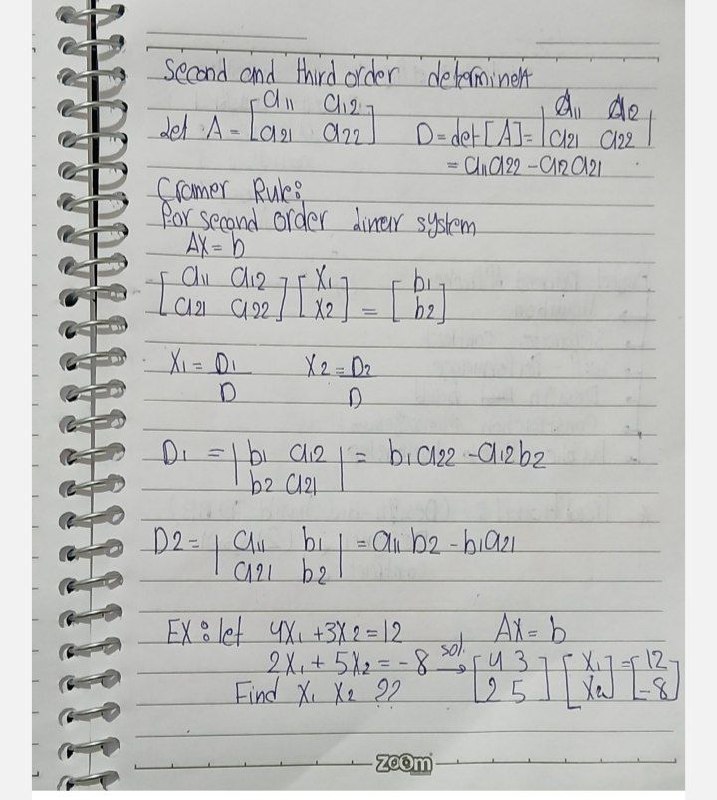 Second and third order determinent
det A = [a11 a12
a21 a22] D = det[A] = |a11 a12
a21 a22|
= a11a22 - a12a21
Cramer Rule:
For second order linear system
AX = b
[a11 a12
a21 a22] [X1
X2] = [b1
b2]
X1 = D1/D X2 = D2/D
D1 = |b1 a12
b2 a21| = b1a22 - a12b2
D2 = |a11 b1
a21 b2| = a11b2 - b1a21
EX: let 4X1 + 3X2 = 12 AX = b
2X1 + 5X2 = -8 sol. → [4 3
2 5] [X1
X2] = [12
-8]
Find X1 X2 ??
ZOOM